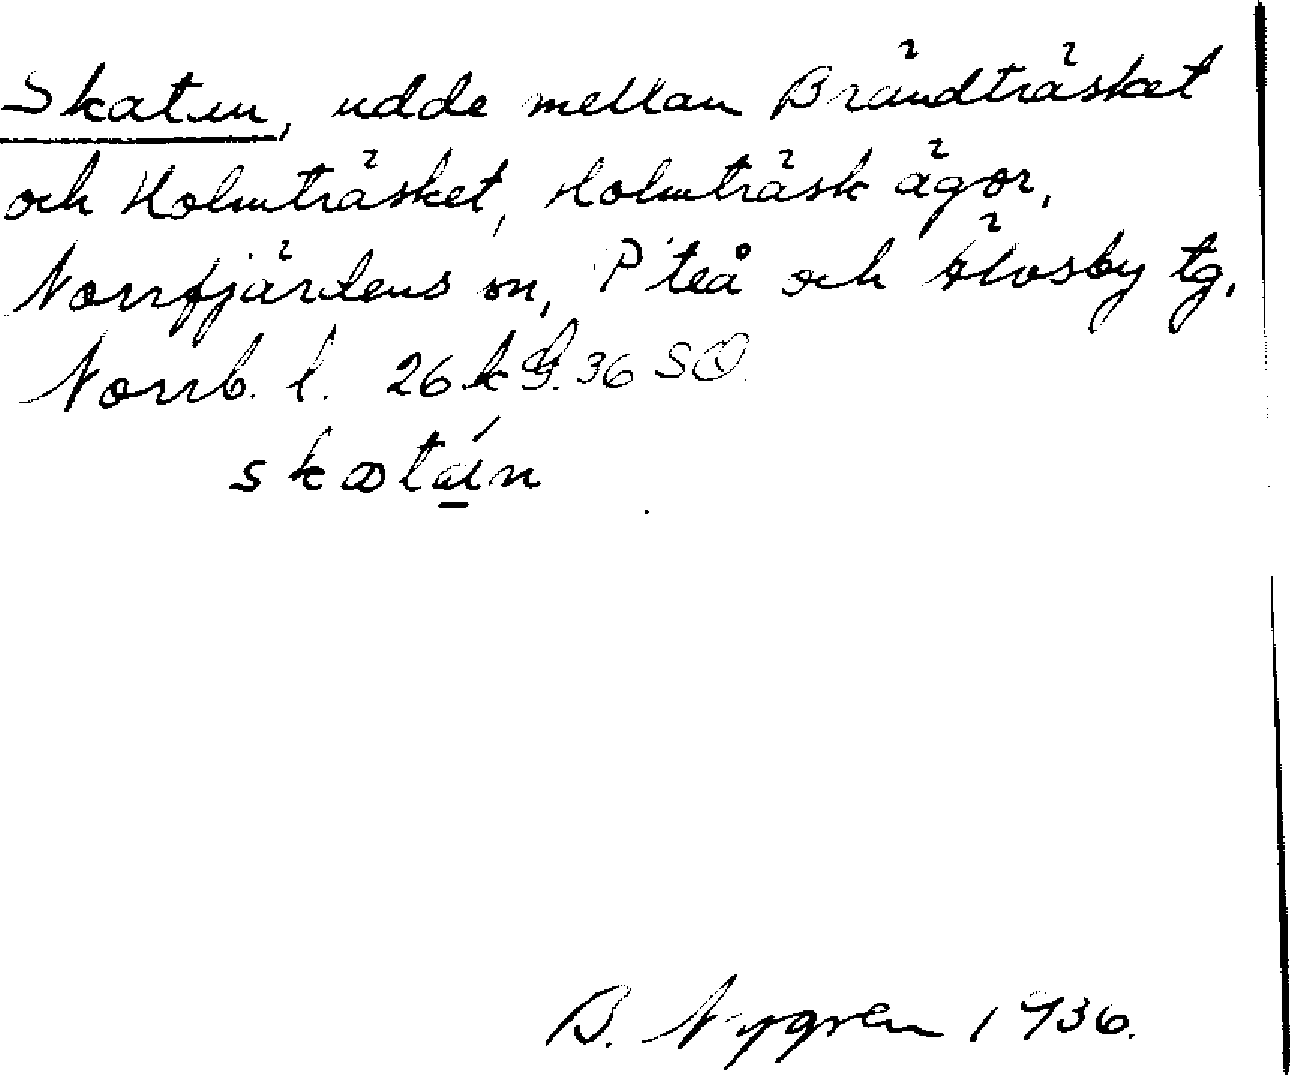 Skaten, udde mellan Brändträsket
och Holmträsket, Holmträsk ägor,
Norrfjärdens sn, Piteå och Älvsby tg,
Norrb. l. 26 k 36 SO
skatn
B. Nygren 1936.